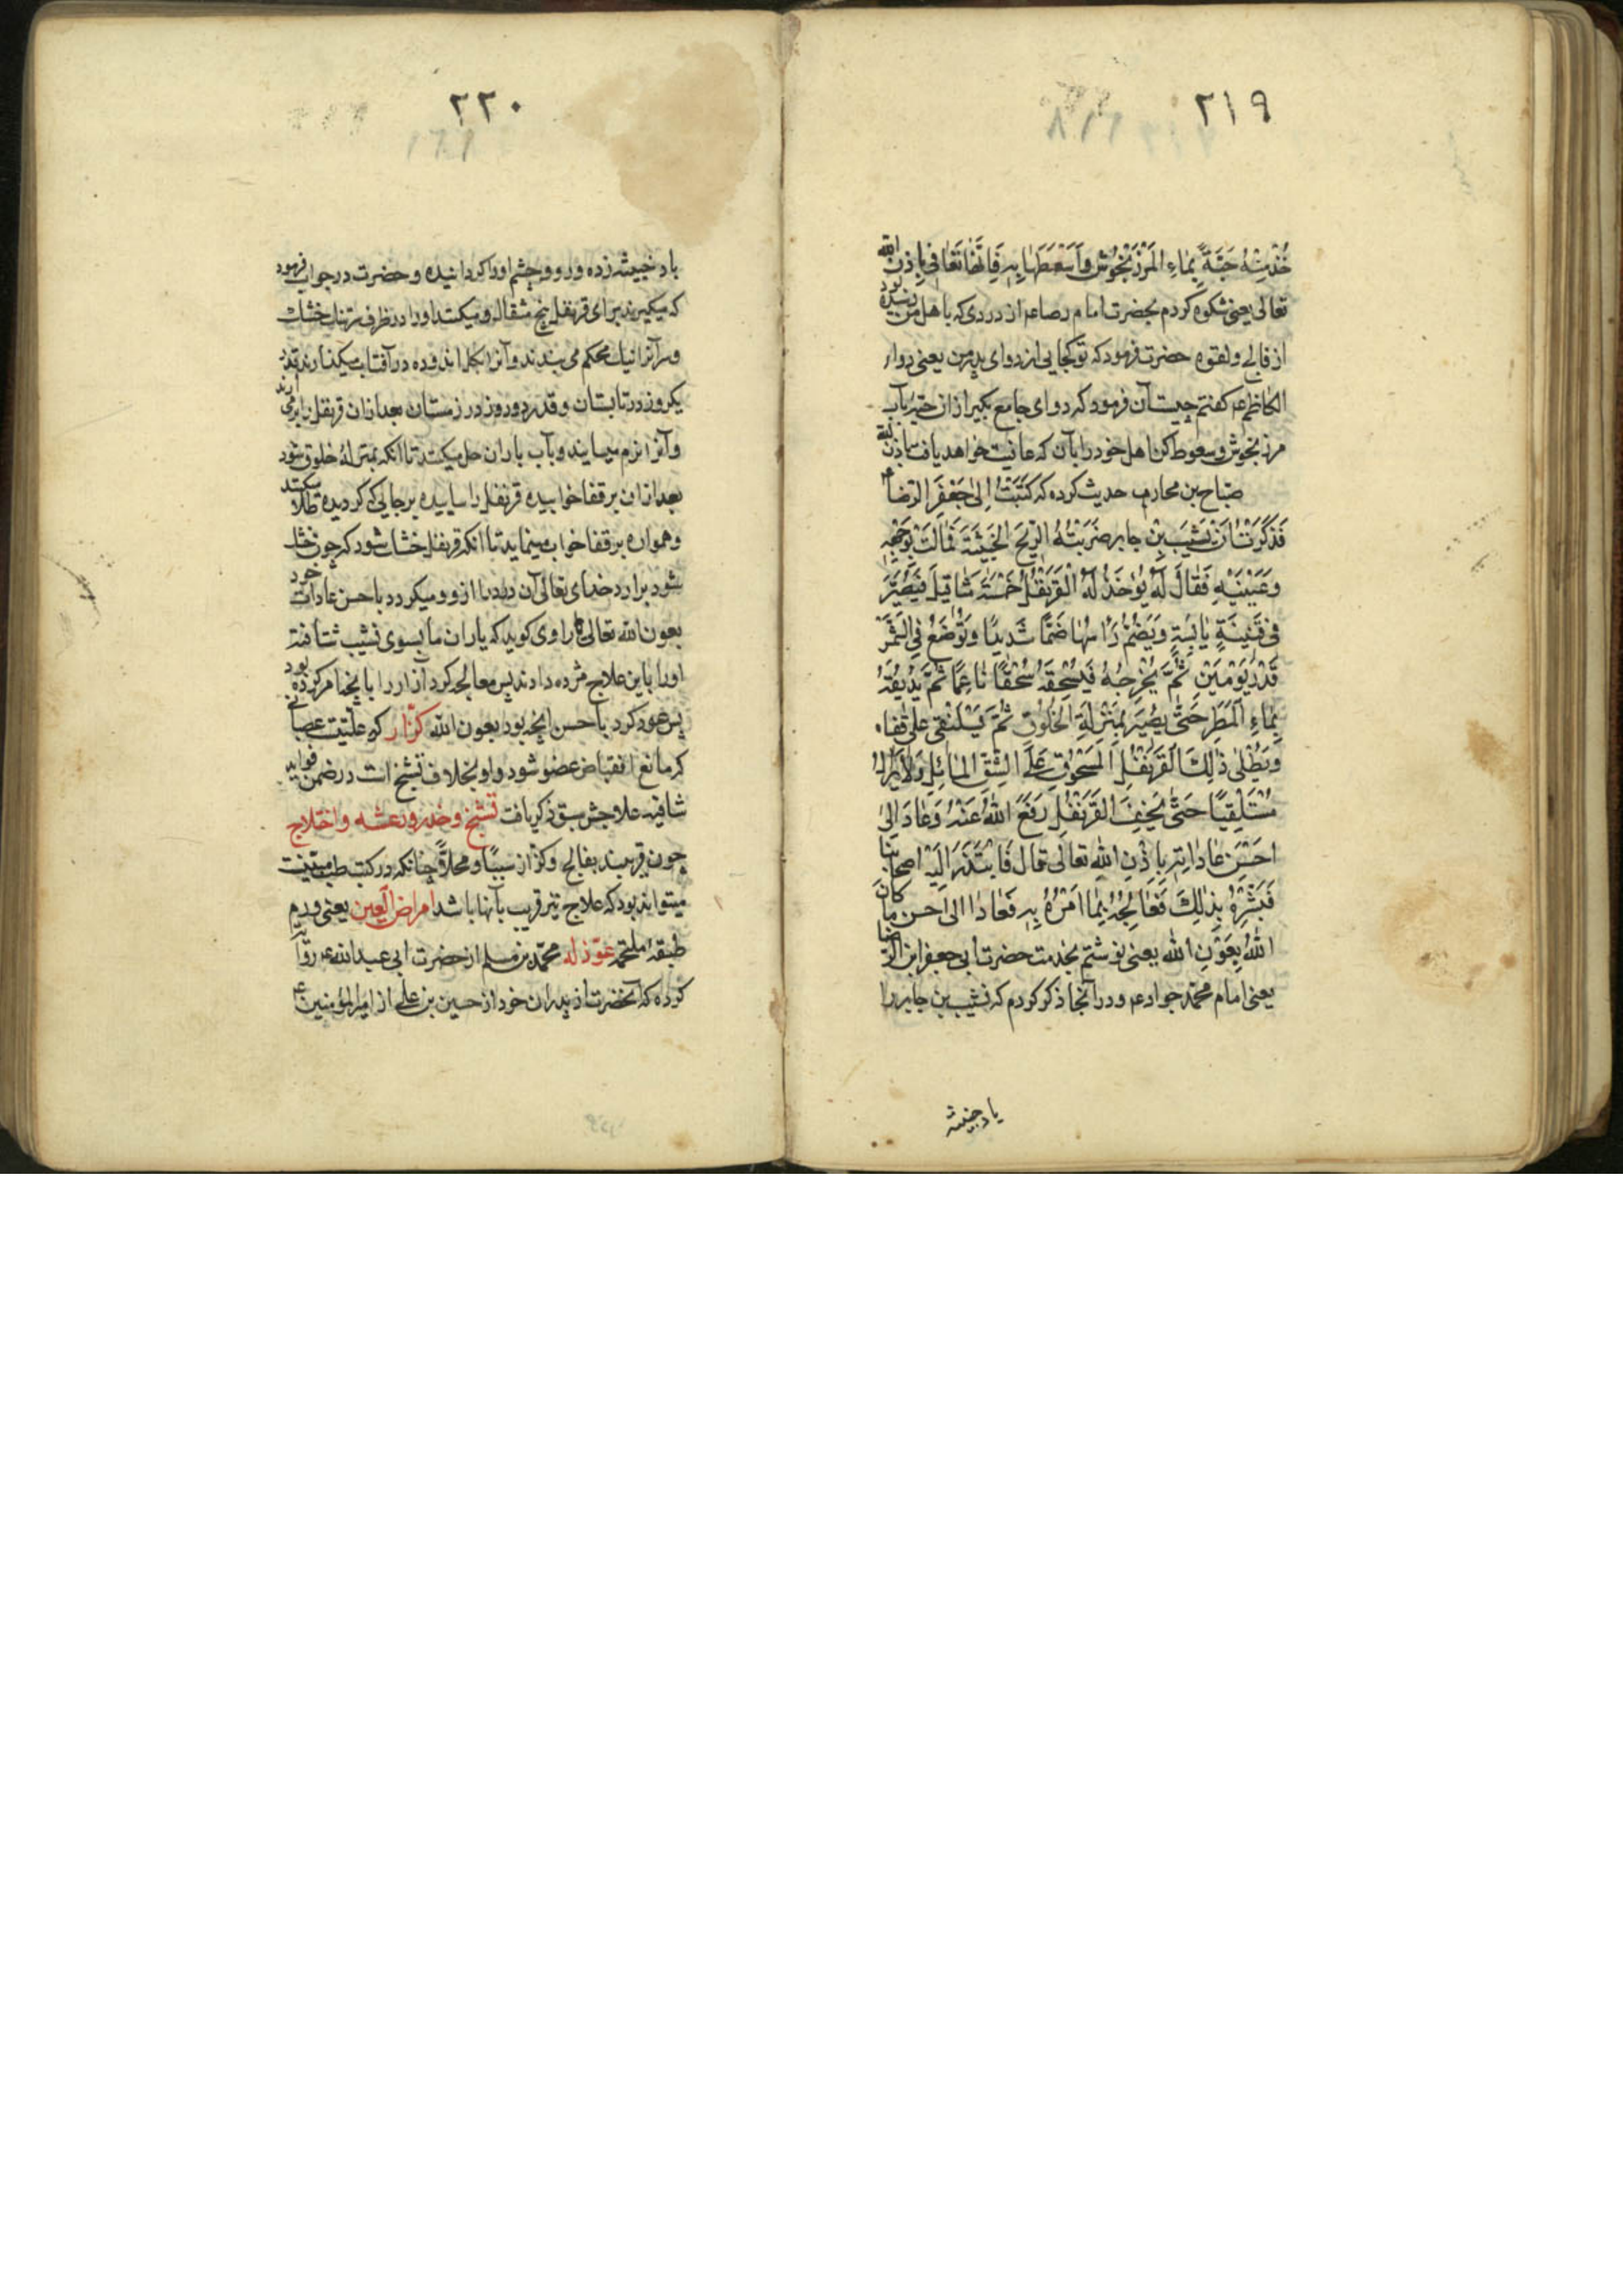 ۲۱۹
خُذْ مِنْهُ حَبَّةً بِمٰاءِ المَرْزَنْجُوشْ وَاَسْعِطْهٰا بِهِ فَاِنَّهٰا تَعٰافي بِاِذنِ الله
تعالی یعنی شکوه کردم بحضرت امام رضا عم از دردی که با هل من رسیده بود
از فالج و لقوه حضرت فرمود که تو کجایی از دوای پدر من یعنی دوای
الکاظم عم کفتم چیست آن فرمود که دوای جامع بکیر از ان حبه بآب
مرزنجوش و سعوط کن اهل خود را بآن که عافیت خواهد یافت باذن الله
صباح بن محارب حدیث کرده که کَتَبْتُ اِلیٰ جَعْفَرَ الرّضا ع
فَذَکَرْتُ اَنَّ شَبیب بْنْ جابر ضَرَبَتْهُ الرّیحَ الخَبیثَةَ فَمٰالَتْ بِوَجْهِهِ
وَعَیْنَیْهِ فَقٰالَ لَهُ یُوْخَذُ لَهُ الْقَرَنْفُلْ خَمْسَةَ مَثٰاقیلَ فَیُصَیَّرَ
فی قَنینَةٍ یٰابِسَةٍ وَیَضُمُّ رَاْسَهٰا ضَمًّا شَدیدًا وَتُوْضَعُ فِی الشَّمْسِ
قَدْرَ یَوْمَیْنِ ثُمَّ یُخْرِجُهُ فَیُسْحِقَهُ سُحْقًا نٰاعِمًا ثُمَّ یُدیفُهُ
بِمٰاءِ اَلْمَطَرِ حَتّیٰ یَصیرَ بِمَنْزِلَةِ الْخَلُوقِ ثُمَّ یَسْتَلْقی عَلیٰ قَفٰاه
وَیُطْلیٰ ذٰلِکَ الْقَرَنْفُلِ الْمَسْحُوقِ عَلَی الشِّقِّ المٰائِلِ وَلاٰیَزٰال
مُسْتَلْقِیًا حَتّیٰ یَجِفَّ القَرَنْفُلِ رَفَعَ اللهُ عَنْهُ وَعٰادَ اِلیٰ
احسَنِ عٰادٰاتِهِ بِاِذْنِ اللهِ تعالی قال فَابْتَدَرَ اِلَیْهِ اصحابنا
فَبَشِّرُهُ بِذٰلِکَ فَعٰالَجُهُ بِمٰا اَمَرَهُ بِهِ فَعٰادَ اِلیٰ اَحسن ما کانَ
اللهُ بِعَوْنِ الله یعنی نوشتم بخدمت حضرت ابی جعفر ابن الرّضا
یعنی امام محمّد جواد عم و در آنجا ذکر کردم که شبیب بن جابر را
باد خبیثه
۲۲۰
باد خبیثه زده و رو و چشم او را کردانیده و حضرت در جواب فرمود
که میکیرند برای قرنفل پنج مثقال و میکنند او را در ظرف خشک
و سر آنرا نیک محکم می بندند و آنرا کل اندوده در آفتاب میکذارند قدر
یکروز در تابستان و قدر دو روز در زمستان بعد ازان قرنفل را بر می آرند
و آنرا نرم میسایند و بآب باران حل میکنند تا آنکه بمنزلهٔ خلوق شود
بعد ازان بر قفا خوابیده قرنفل را ساییده بر جایی که کردیده طلا میکند
و همواره بر قفا خواب مینماید تا آنکه قرنفل خشک شود که چون خشک
شود بر دارد خدای تعالی آن درد را از او و میکردد باحسن عادات خود
بعون الله تعالی راوی کوید که یاران ما بسوی شبیب شتافته
او را باین علاج مژده دادند پس معالجه کرد آزار را بآنچه امر کرده بود
پس عود کرد باحسن آنچه بود بعون الله کزّاز که علّتیست عصبانی
که مانع انقباض عضو شود و او بخلاف تشنج است در ضمن فواید
شافیه علاجش سبق ذکر یافت تشنج و خدر و رعشه و اختلاج
چون قریبند بفالج و کزاز سببًا و محلاًّ چنانکه در کتب طب مبیّنست
میتواند بود که علاج نیز قریب بآنها باشد امراض العین یعنی ورم
طبقهٔ ملتحمه عوّذ له محمّد بن مسلم از حضرت ابی عبدالله عم روایت
کرده که آنحضرت از پدران خود از حسین بن علی از امیرالمؤمنین ع